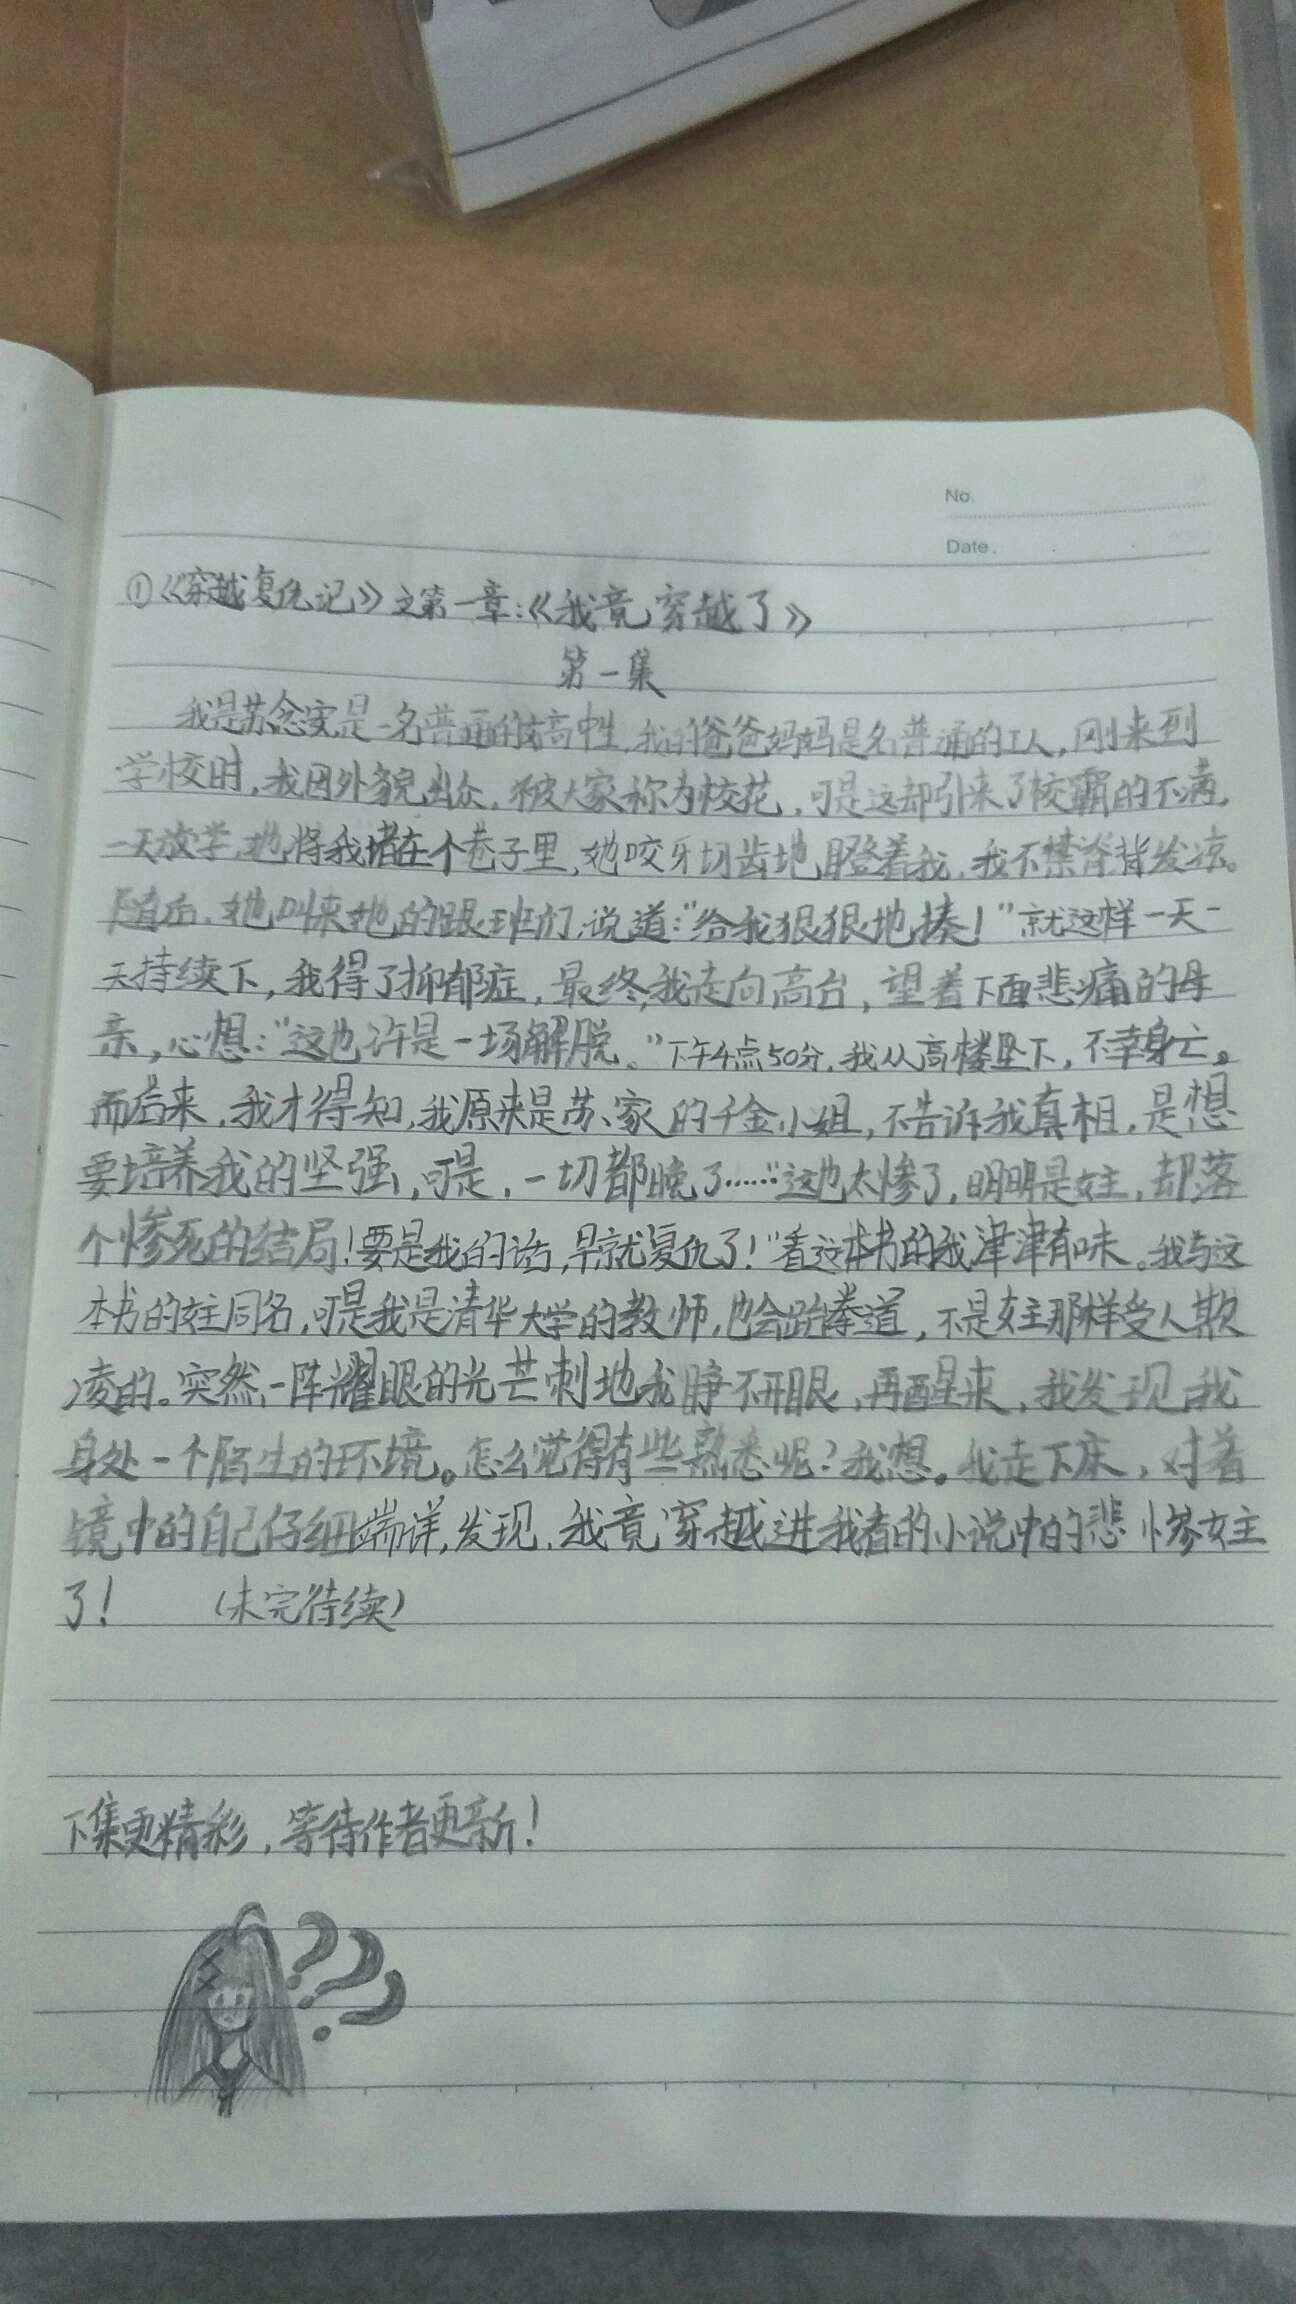 No.
Date.
①《穿越复仇记》之第一章:《我竟穿越了》
第一集
我是苏念安是一名普通的女高中生,我的爸爸妈妈是名普通的工人,刚来到
学校时,我因外貌出众,被大家称为校花,可是这却引来了校霸的不满,
一天放学,她将我堵在个巷子里,她咬牙切齿地瞪着我,我不禁脊背发凉。
随后,她叫来她的跟班们,说道:“给我狠狠地揍!”就这样一天一
天持续下,我得了抑郁症,最终,我走向高台,望着下面悲痛的母
亲,心想:“这也许是一场解脱。”下午4点50分,我从高楼坠下,不幸身亡。
而后来,我才得知,我原来是苏家的千金小姐,不告诉我真相,是想
要培养我的坚强,可是,一切都晚了……“这也太惨了,明明是女主,却落
个惨死的结局!要是我的话,早就复仇了!”看这本书的我津津有味。我与这
本书的女主同名,可是我是清华大学的教师,也会跆拳道,不是女主那样受人欺
凌的。突然,一阵耀眼的光芒刺地我睁不开眼,再醒来,我发现我
身处一个陌生的环境。怎么觉得有些熟悉呢?我想。我走下床,对着
镜中的自己仔细端详,发现,我竟穿越进我看的小说中的悲惨女主
了! (未完待续)
下集更精彩,等待作者更新!
???